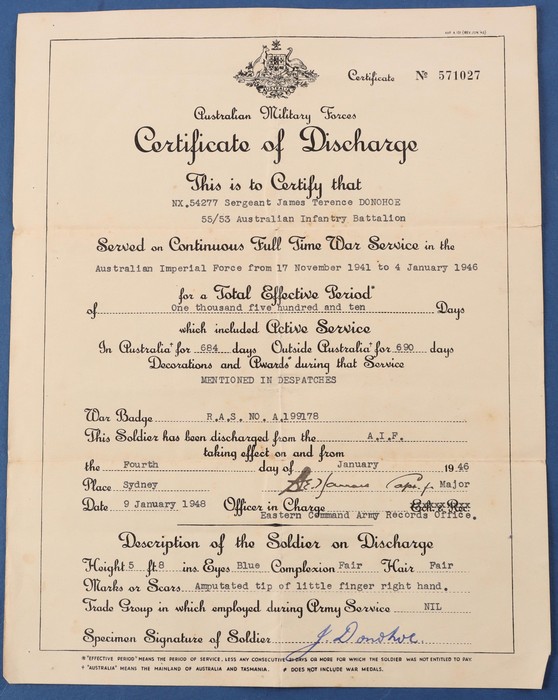 Certificate № 571027
Australian Military Forces
Certificate of Discharge
This is to Certify that
NX.54277 Sergeant James Terence DONOHOE
55/53 Australian Infantry Battalion
Served on Continuous Full Time War Service in the
Australian Imperial Force from 17 November 1941 to 4 January 1946
for a Total Effective Period*
of One thousand five hundred and ten Days
which included Active Service
In Australia† for 684 days Outside Australia† for 690 days
Decorations and Awards‡ during that Service
MENTIONED IN DESPATCHES
War Badge R.A.S. NO. A.199178
This Soldier has been discharged from the A.I.F.
taking effect on and from
the Fourth day of January 1946
Place Sydney Major
Date 9 January 1948 Officer in Charge Ech. & Rec.
Eastern Command Army Records Office.
Description of the Soldier on Discharge
Height 5 ft 8 ins. Eyes Blue Complexion Fair Hair Fair
Marks or Scars Amputated tip of little finger right hand.
Trade Group in which employed during Army Service NIL
Specimen Signature of Soldier J. Donohoe.
* "EFFECTIVE PERIOD" MEANS THE PERIOD OF SERVICE, LESS ANY CONSECUTIVE 21 DAYS OR MORE FOR WHICH THE SOLDIER WAS NOT ENTITLED TO PAY.
† "AUSTRALIA" MEANS THE MAINLAND OF AUSTRALIA AND TASMANIA. ‡ DOES NOT INCLUDE WAR MEDALS.